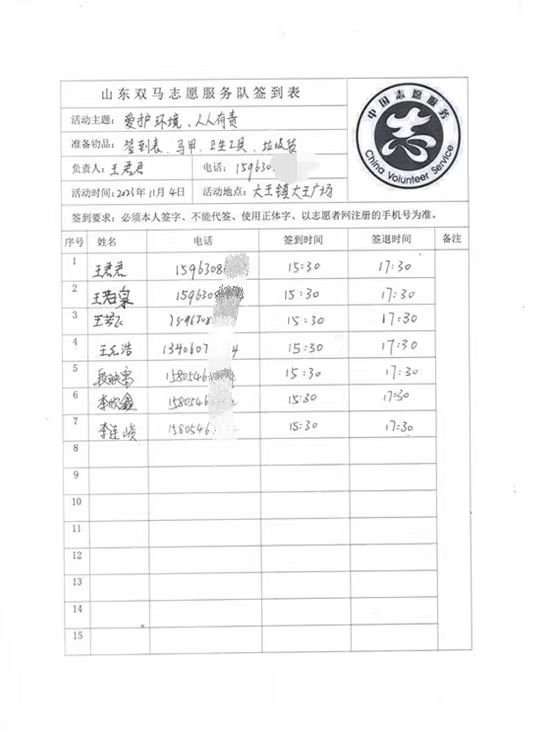 山东双马志愿服务队签到表
中国志愿服务
China Volunteer Service
活动主题：爱护环境、人人有责
准备物品：签到表、马甲、卫生工具、垃圾袋
负责人：王君君 电话：159630
活动时间：2023年11月4日 活动地点：大王镇大王广场
签到要求：必须本人签字、不能代签、使用正体字、以志愿者网注册的手机号为准。
序号 姓名 电话 签到时间 签退时间 备注
1 王君君 1596308 15:30 17:30
2 1596308 15:30 17:30
3 15:30 17:30
4 王允浩 1340607 4 15:30 17:30
5 1580546 15:30 17:30
6 李欣鑫 1580546 15:30 17:30
7 李连峻 1580546 15:30 17:30
8
9
10
11
12
13
14
15